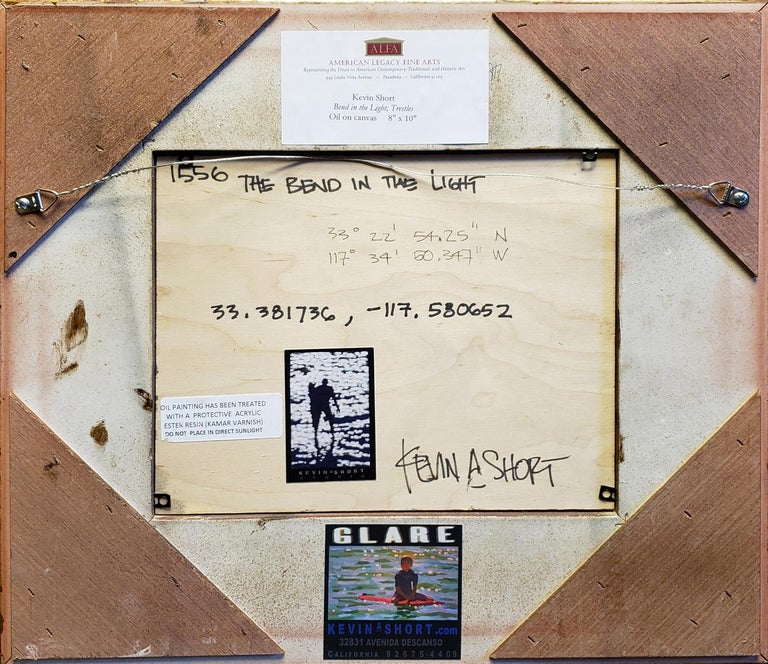 ALFA
AMERICAN LEGACY FINE ARTS
Representing the Finest in American Contemporary-Traditional and Historic Art
Linda Vista Avenue Pasadena California 91103
Kevin Short
Bend in the Light; Trestles
Oil on canvas 8" x 10"
1556 THE BEND IN THE LIGHT
33° 22' 54.25" N
117° 34' 50.347" W
33.381736, -117.580652
OIL PAINTING HAS BEEN TREATED
WITH A PROTECTIVE ACRYLIC
ESTER RESIN (KAMAR VARNISH)
DO NOT PLACE IN DIRECT SUNLIGHT
KEVIN A SHORT
STUDIO
KEVIN A SHORT
GLARE
KEVIN A SHORT.com
32831 AVENIDA DESCANSO
CALIFORNIA 92675-4409